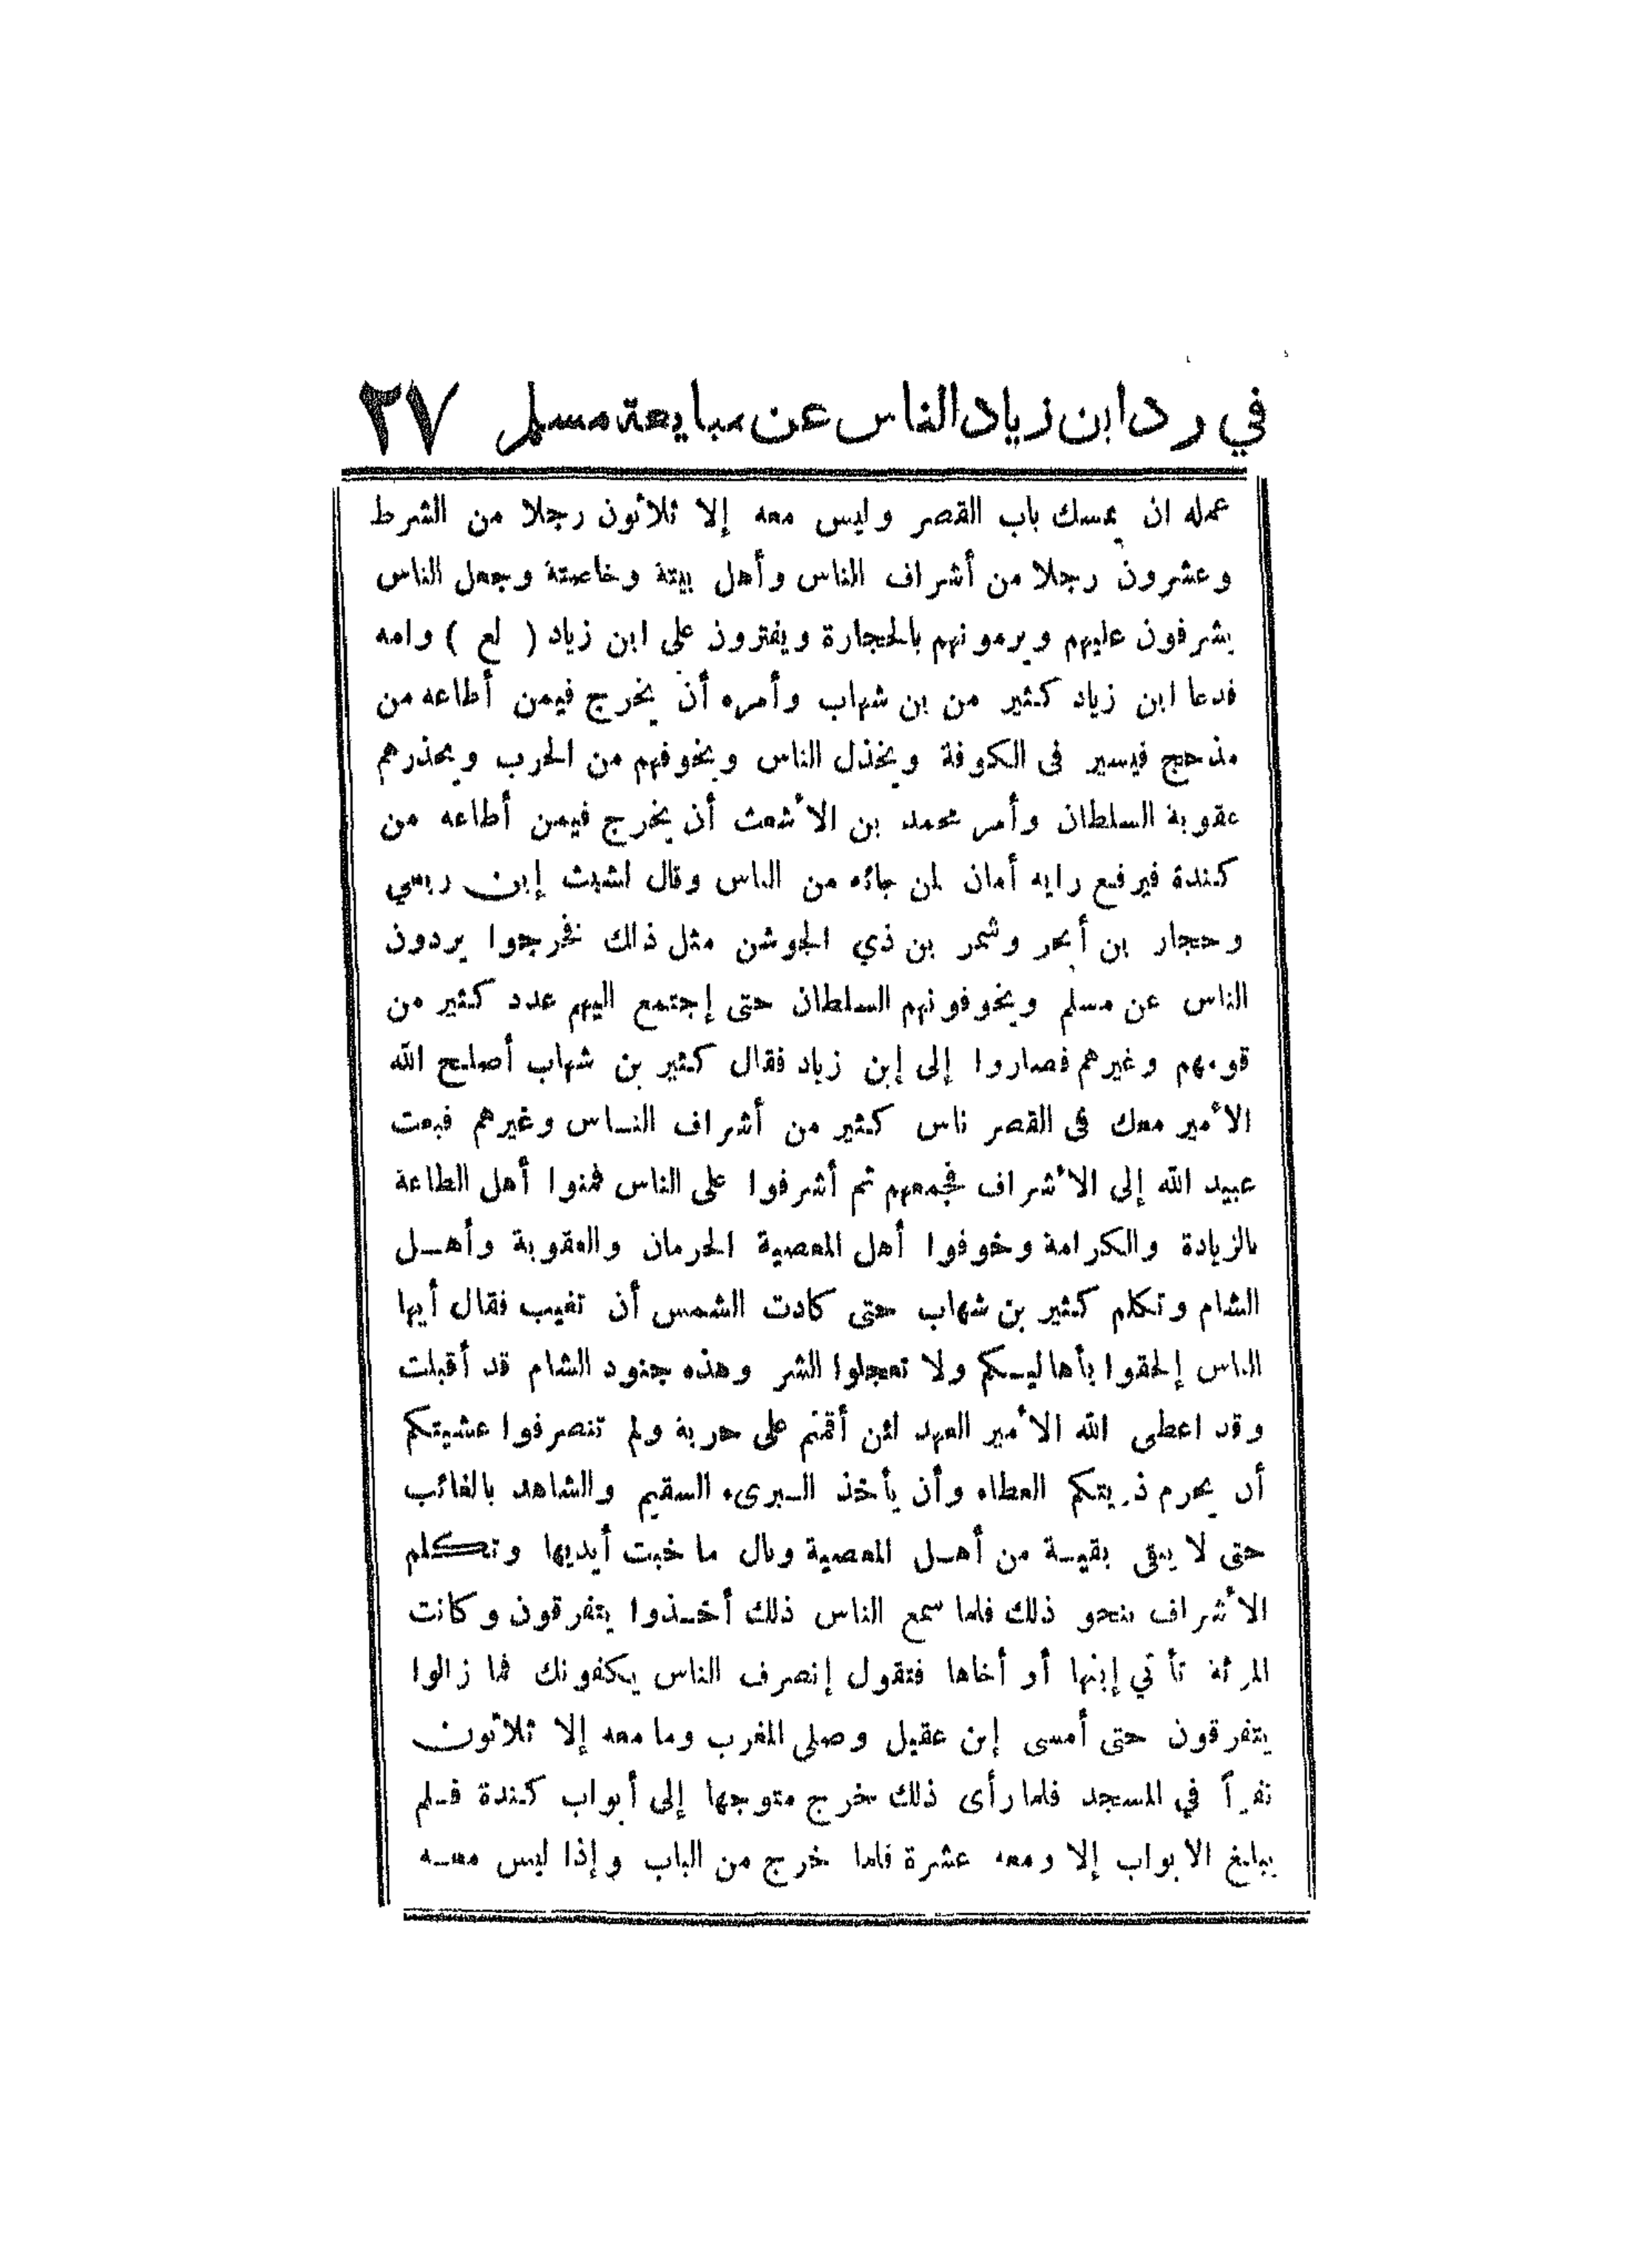 في رد ابن زياد الناس عن مبايعة مسلم ٢٧
عمله ان يمسك باب القصر وليس معه إلا ثلاثون رجلا من الشرط
وعشرون رجلا من أشراف الناس وأهل بيتة وخاصتة وجعل الناس
يشرفون عليهم ويرمونهم بالحجارة ويفترون على ابن زياد ( لع ) وامه
فدعا ابن زياد كثير من بن شهاب وأمره أن يخرج فيمن أطاعه من
مذحج فيسير فى الكوفة ويخذل الناس ويخوفهم من الحرب ويحذرهم
عقوبة السلطان وأمر محمد بن الأشعث أن يخرج فيمن أطاعه من
كندة فيرفع رايه أمان لمن جائه من الناس وقال لشبث إبن ربعي
وحجار بن أبحر وشمر بن ذي الجوشن مثل ذالك فخرجوا يردون
الناس عن مسلم ويخوفونهم السلطان حتى إجتمع اليهم عدد كثير من
قومهم وغيرهم فصاروا إلى إبن زياد فقال كثير بن شهاب أصلح الله
الأمير معك فى القصر ناس كثير من أشراف النساس وغيرهم فبعت
عبيد الله إلى الأشراف فجمعهم ثم أشرفوا على الناس فمنوا أهل الطاعة
بالزيادة والكرامة وخوفوا أهل المعصية الحرمان والعقوبة وأهل
الشام وتكلم كثير بن شهاب حتى كادت الشمس أن تغيب فقال أيها
الناس إلحقوا بأهاليكم ولا تعجلوا الشر وهذه جنود الشام قد أقبلت
وقد اعطى الله الأمير العهد لئن أقمتم على حربة ولم تنصرفوا عشيتكم
أن يحرم ذريتكم العطاء وأن يأخذ البرىء السقيم والشاهد بالغائب
حتى لا يبقى بقية من أهل المعصية وبال ما خبت أيديها وتكلم
الأشراف بنحو ذلك فلما سمع الناس ذلك أخذوا يتفرقون وكانت
المرئة تأتي إبنها أو أخاها فتقول إنصرف الناس يكفونك فما زالوا
يتفرقون حتى أمسى إبن عقيل وصلى المغرب وما معه إلا ثلاثون
نفراً في المسجد فلما رأى ذلك خرج متوجها إلى أبواب كندة فلم
يبلغ الابواب إلا ومعه عشرة فلما خرج من الباب وإذا ليس معه